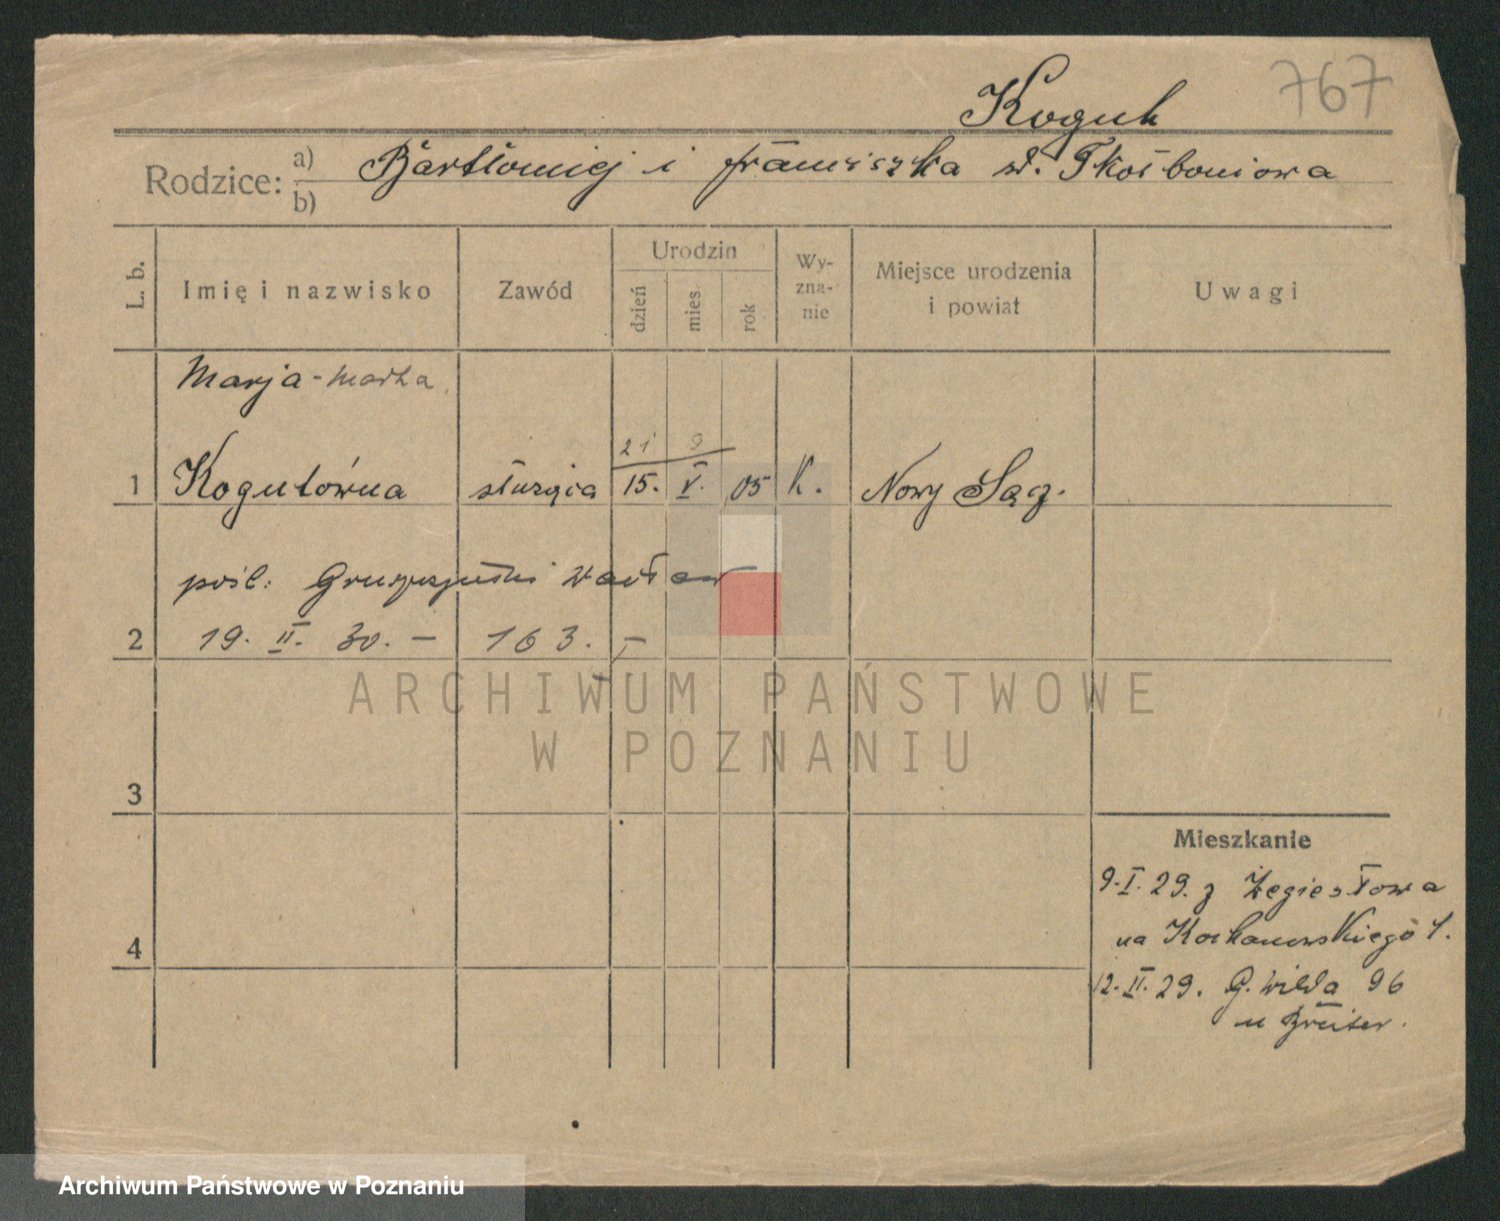 767
Kogut
Rodzice: a) b) Bartłomiej i Franciszka
L. b. Imię i nazwisko Zawód Urodzin dzień mies. rok Wy-zna-nie Miejsce urodzenia i powiat Uwagi
Marja - Marta
21 9
1 Kogutówna służąca 15. V. 05 K. Nowy Sącz.
pośl: Wacław
2 19. II. 30. - 163. -
ARCHIWUM PAŃSTWOWE
W POZNANIU
3
Mieszkanie
9.I.29. z Żegiestowa
4 na Kochanowskiego 1.
12.II.29. G. Wilda 96
u
Archiwum Państwowe w Poznaniu